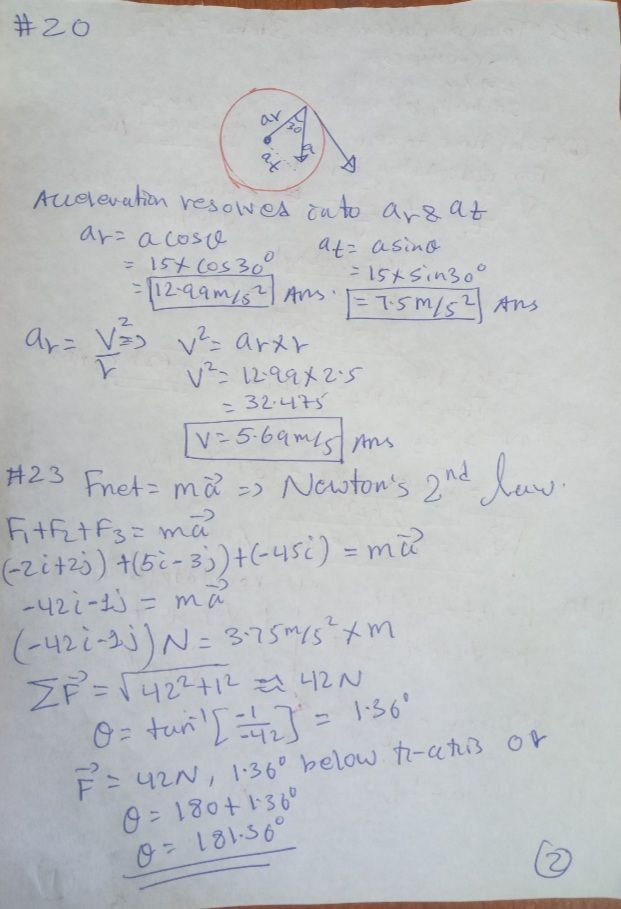 #20
ar
30
a
at
Acceleration resolved into ar & at
ar = a cosθ
= 15 x cos 30°
= 12.99 m/s² Ans.
at = a sinθ
= 15 x sin 30°
= 7.5 m/s² Ans
ar = V²/r => V² = ar x r
V² = 12.99 x 2.5
= 32.475
V = 5.69 m/s Ans
#23 Fnet = ma⃗ => Newton's 2nd law.
F₁+F₂+F₃ = ma⃗
(-2i+2j) + (5i-3j) + (-45i) = ma⃗
-42i-1j = ma⃗
(-42i-1j) N = 3.75 m/s² x m
ΣF⃗ = √42²+1² ≈ 42 N
θ = tan⁻¹[-1/-42] = 1.36°
F⃗ = 42N, 1.36° below x-axis or
θ = 180 + 1.36°
θ = 181.36°
2